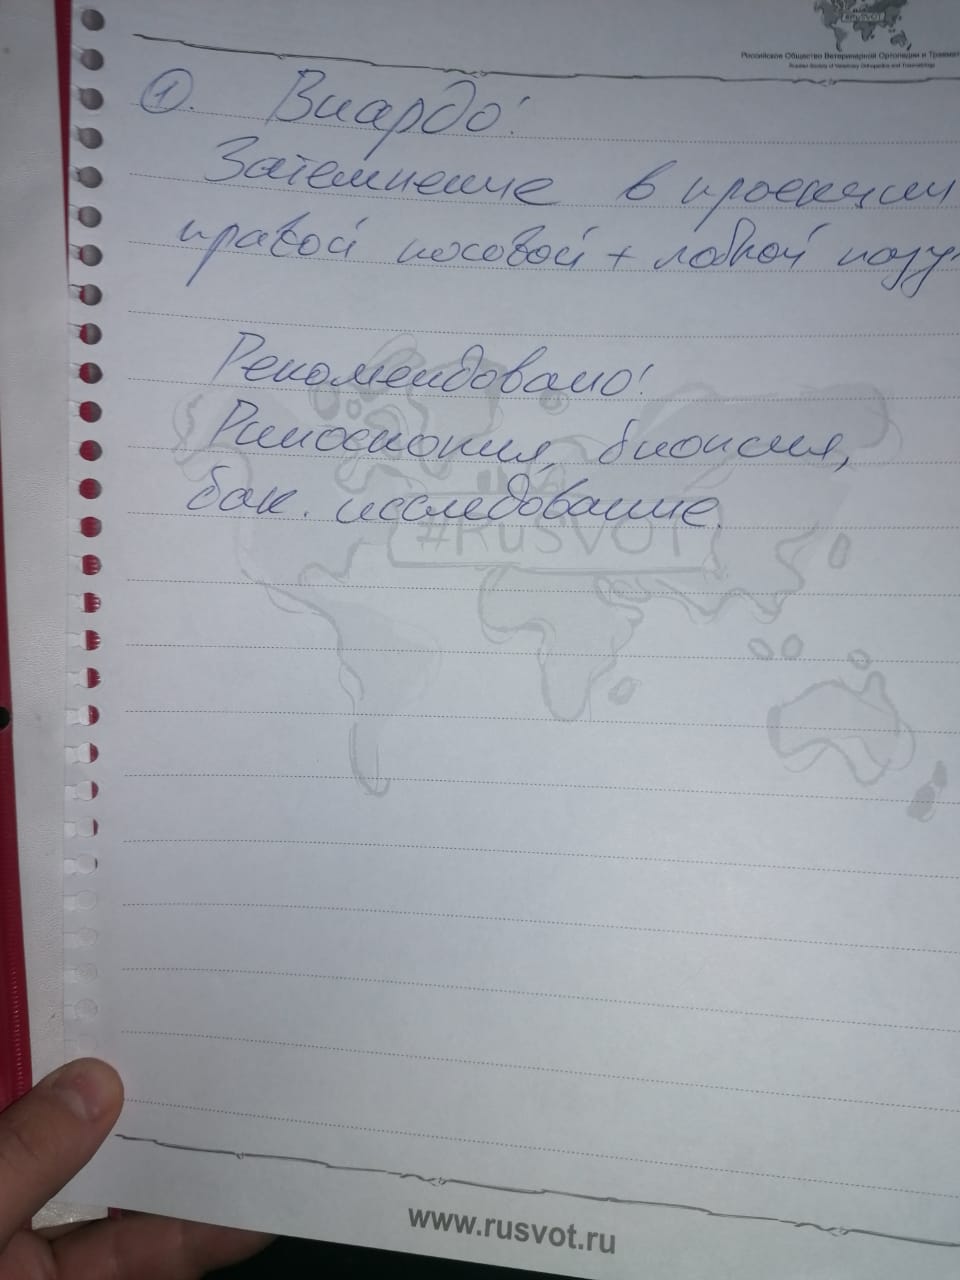 #RUSVOT
Российское Общество Ветеринарной Ортопедии и Травмат
Russian Society of Veterinary Orthopedics and Traumatology
1. Виардо:
Затемнение в проекции
правой носовой + лобной пазу
Рекомендовано:
Риноскопия, биопсия,
бак. исследование.
#RUSVOT
www.rusvot.ru